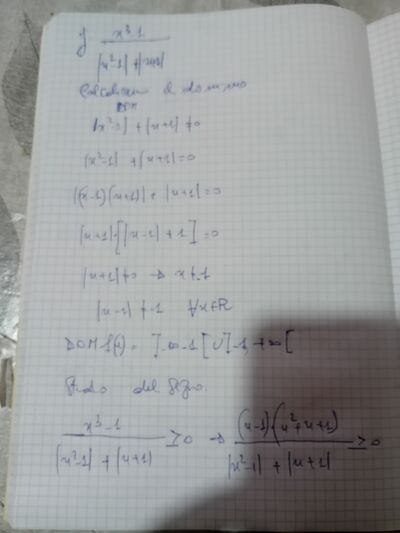 y x³-1
|x²-1| + |x+1|
Calcoliamo il dominio
DOM
|x²-1| + |x+1| ≠0
|x²-1| + |x+1| =0
|(x-1)(x+1)| + |x+1| =0
|x+1|·[|x-1| + 1] =0
|x+1| ≠0 → x ≠ -1
|x-1| ≠ -1 ∀x∈R
DOM f(x) = ]-∞ -1[ U ]-1, +∞[
Studio del segno.
x³-1 / |x²-1| + |x+1| ≥0 → (x-1)·(x²+x+1) / |x²-1| + |x+1| ≥0